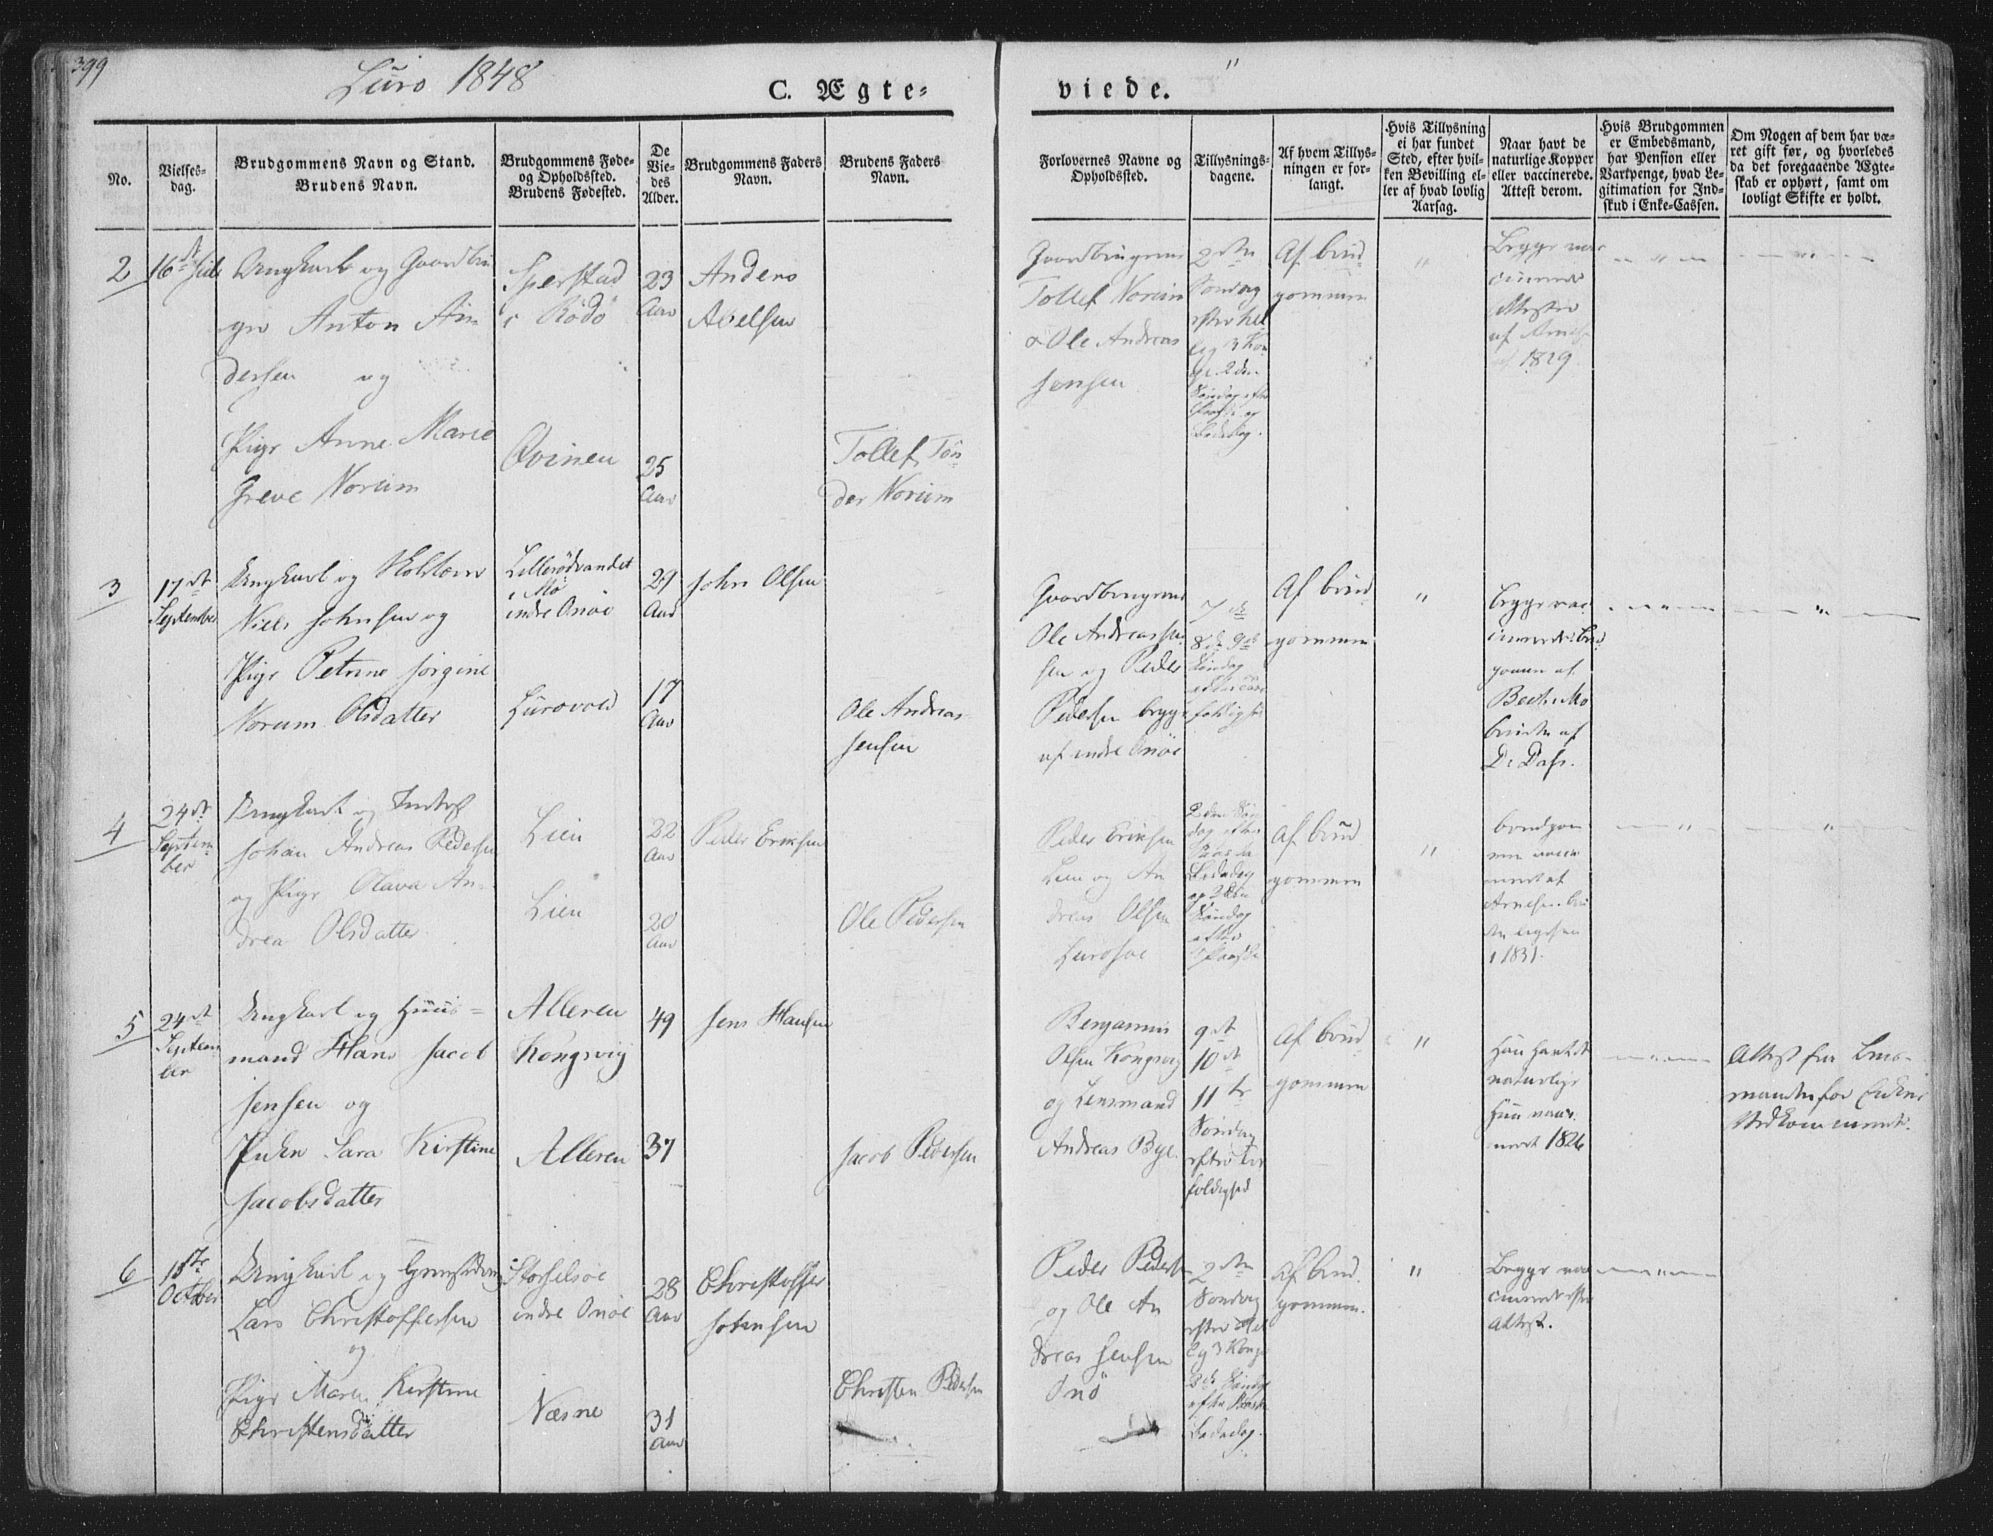 399
Luro 1848
C. Ægte=
viede.
No.
Vielses-
dag.
Brudgommens Navn og Stand.
Brudens Navn.
Brudgommens Føde-
og Opholdssted.
Brudens Fødested.
De
Vie-
des
Alder.
Brudgommens Faders
Navn.
Brudens Faders
Navn.
Forlovernes Navne og
Opholdssted.
Tillysnings-
dagene.
Af hvem Tillys-
ningen er for-
langt.
Hvis Tillysning
ei har fundet
Sted, efter hvil-
ken Bevilling el-
ler af hvad lovlig
Aarsag.
Naar havt de
naturlige Kopper
eller vaccinerede.
Attest derom.
Hvis Brudgommen
er Embedsmand,
har Pension eller
Vartpenge, hvad Le-
gitimation for Ind-
skud i Enke-Cassen.
Om Nogen af dem har væ-
ret gift før, og hvorledes
da det foregaaende Ægte-
skab er ophørt, samt om
lovligt Skifte er holdt.
2
16de Juli
Ungkarl og Gaardbru
ger Anton An
dersen og
Pige Anne Marie
Greve Norum
Sperstad
i Rödö
Qvinen
23
Aar
25
Aar
Anders
Abelsen
Tollef Tön
der Norum
Gaardbrugerne
Tollef Norum
& Ole Andreas
Jensen
2den
Söndag
efter hel
lig 3 Kon
ge 2den
Söndag efter
Paaske og
Bededag.
Af brud
gommen
"
Begge vac
cinerede
Attester
af
1829
3
17de
September
Ungkarl og
Niels Johnsen og
Pige Petrine Jörgine
Norum Olsdatter
Lillerödvandet
i Mo
indre Onöe
Lurovold
29
Aar
17
Aar
John Olsen
Ole Andreas
Jensen
Gaardbrugerne
Ole Andreas Jen
sen og Peder
Pedersen begge
af indre Onöe
7de
8de 9de
Söndag
Af brud
gommen
"
Begge vac
cinerede Brud
gommen af
Bech i Mo
bruden af
D. Dass.
4
24de
Septem
ber
Ungkarl og
Johan Andreas Pedersen
og Pige Olava An
drea Olsdatter
Lien
Lien
22
Aar
20
Aar
Peder Eriksen
Ole Pedersen
Peder Eriksen
Lien og An
dreas Olsen
2den Sön
dag efter
Paaske
Bededag
og 2den
Söndag
efter
Af brud
gommen
"
brudgom
men vacci
neret af
Arnesen
1831.
5
24de
Septem
ber
Ungkarl og Huus=
mand Hans Jacob
Jensen og
Sara Kirstine
Jacobsdatter
Alleren
Kongsvig
Alleren
49
37
Jens Hansen
Jacob Pedersen
Benjamin
Olsen Kongsvig
og Lensmand
Andreas Bye
9de
10de
11te
Söndag
efter Tre
foldighed
Af brud
gommen
"
Han havt de
naturlige
Hun vacci
neret 1826
Attest fra Lens-
manden for Enken
vedkommende.
6
15de
October
Ungkarl og
Lars Christoffersen
og
Pige Maren Kirstine
Christensdatter
Storselsöe
indre Onöe
Næsne
28
Aar
31
Aar
Christoffer
Johnsen
Christen Pedersen
Peder Pedersen
og Ole An
dreas Jensen
Onö
2den
Söndag
efter Hel
lig 3 Konge
2de Söndag
efter Paaske
Bededag.
Af brud
gommen.
"
Begge vac
cinerede efter
Attest.